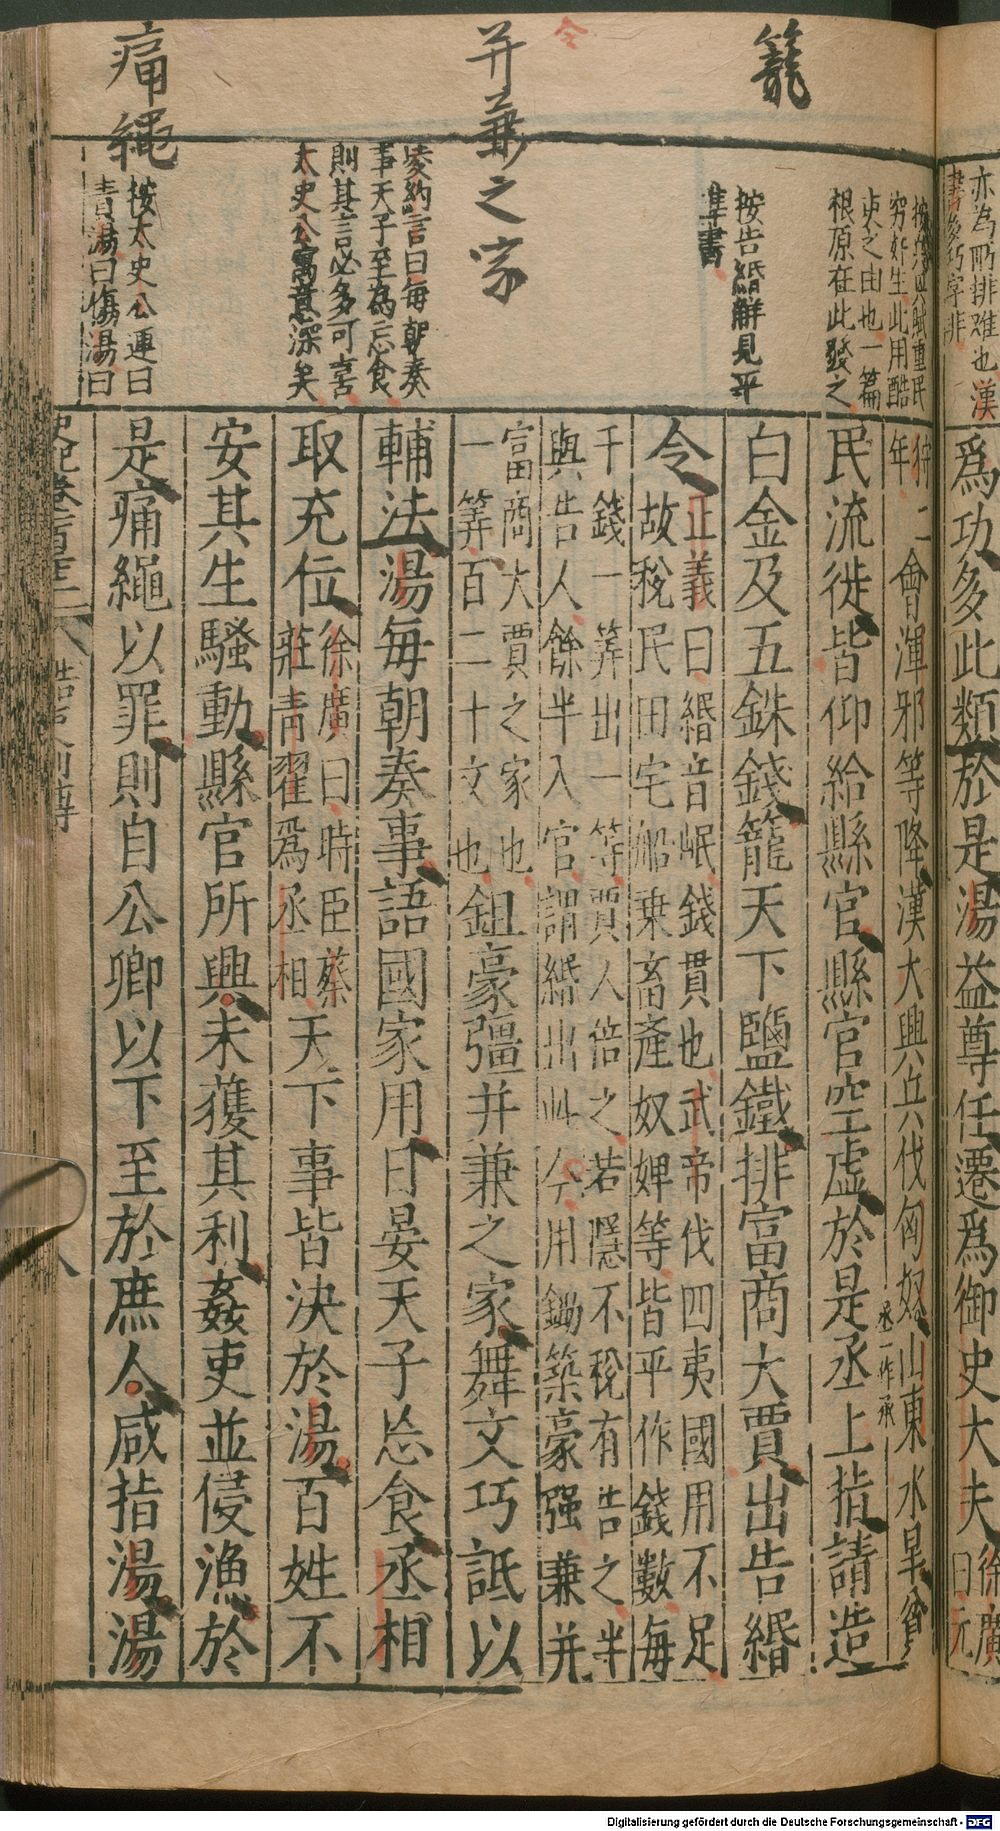 籠
并兼之家
痛繩
亦為所排難也漢
書後巧字非
窮奸生此用酷
吏之由也一篇
根原在此發之
按告緡解見平
準書
凌約言曰每朝奏
事天子至為忘食
則其言必多可喜
太史公寓意深矣
按太史公連曰
責湯曰傷湯曰
爲功多此類於是湯益尊任遷爲御史大夫徐廣
曰元
狩二
年
會渾邪等降漢大興兵伐匈奴山東水旱貧
丞一作承
民流徙皆仰給縣官縣官空虛於是丞上指請造
白金及五銖錢籠天下鹽鐵排富商大賈出告緡
令
正義曰緡音岷錢貫也武帝伐四夷國用不足
故稅民田宅船乗畜產奴婢等皆平作錢數每
千錢一筭出一等賈人倍之若隱不稅有告之半
與告人餘半入官謂緡出此令用鋤築豪强兼并
富商大賈之家也
一筭百二十文也
鉏豪彊并兼之家舞文巧詆以
輔法湯每朝奏事語國家用日晏天子忘食丞相
取充位
徐廣曰時臣蔡
莊青翟爲丞相
天下事皆決於湯百姓不
安其生騷動縣官所興未獲其利姦吏並侵漁於
是痛繩以罪則自公卿以下至於庶人咸指湯湯
Digitalisierung gefördert durch die Deutsche Forschungsgemeinschaft - DFG